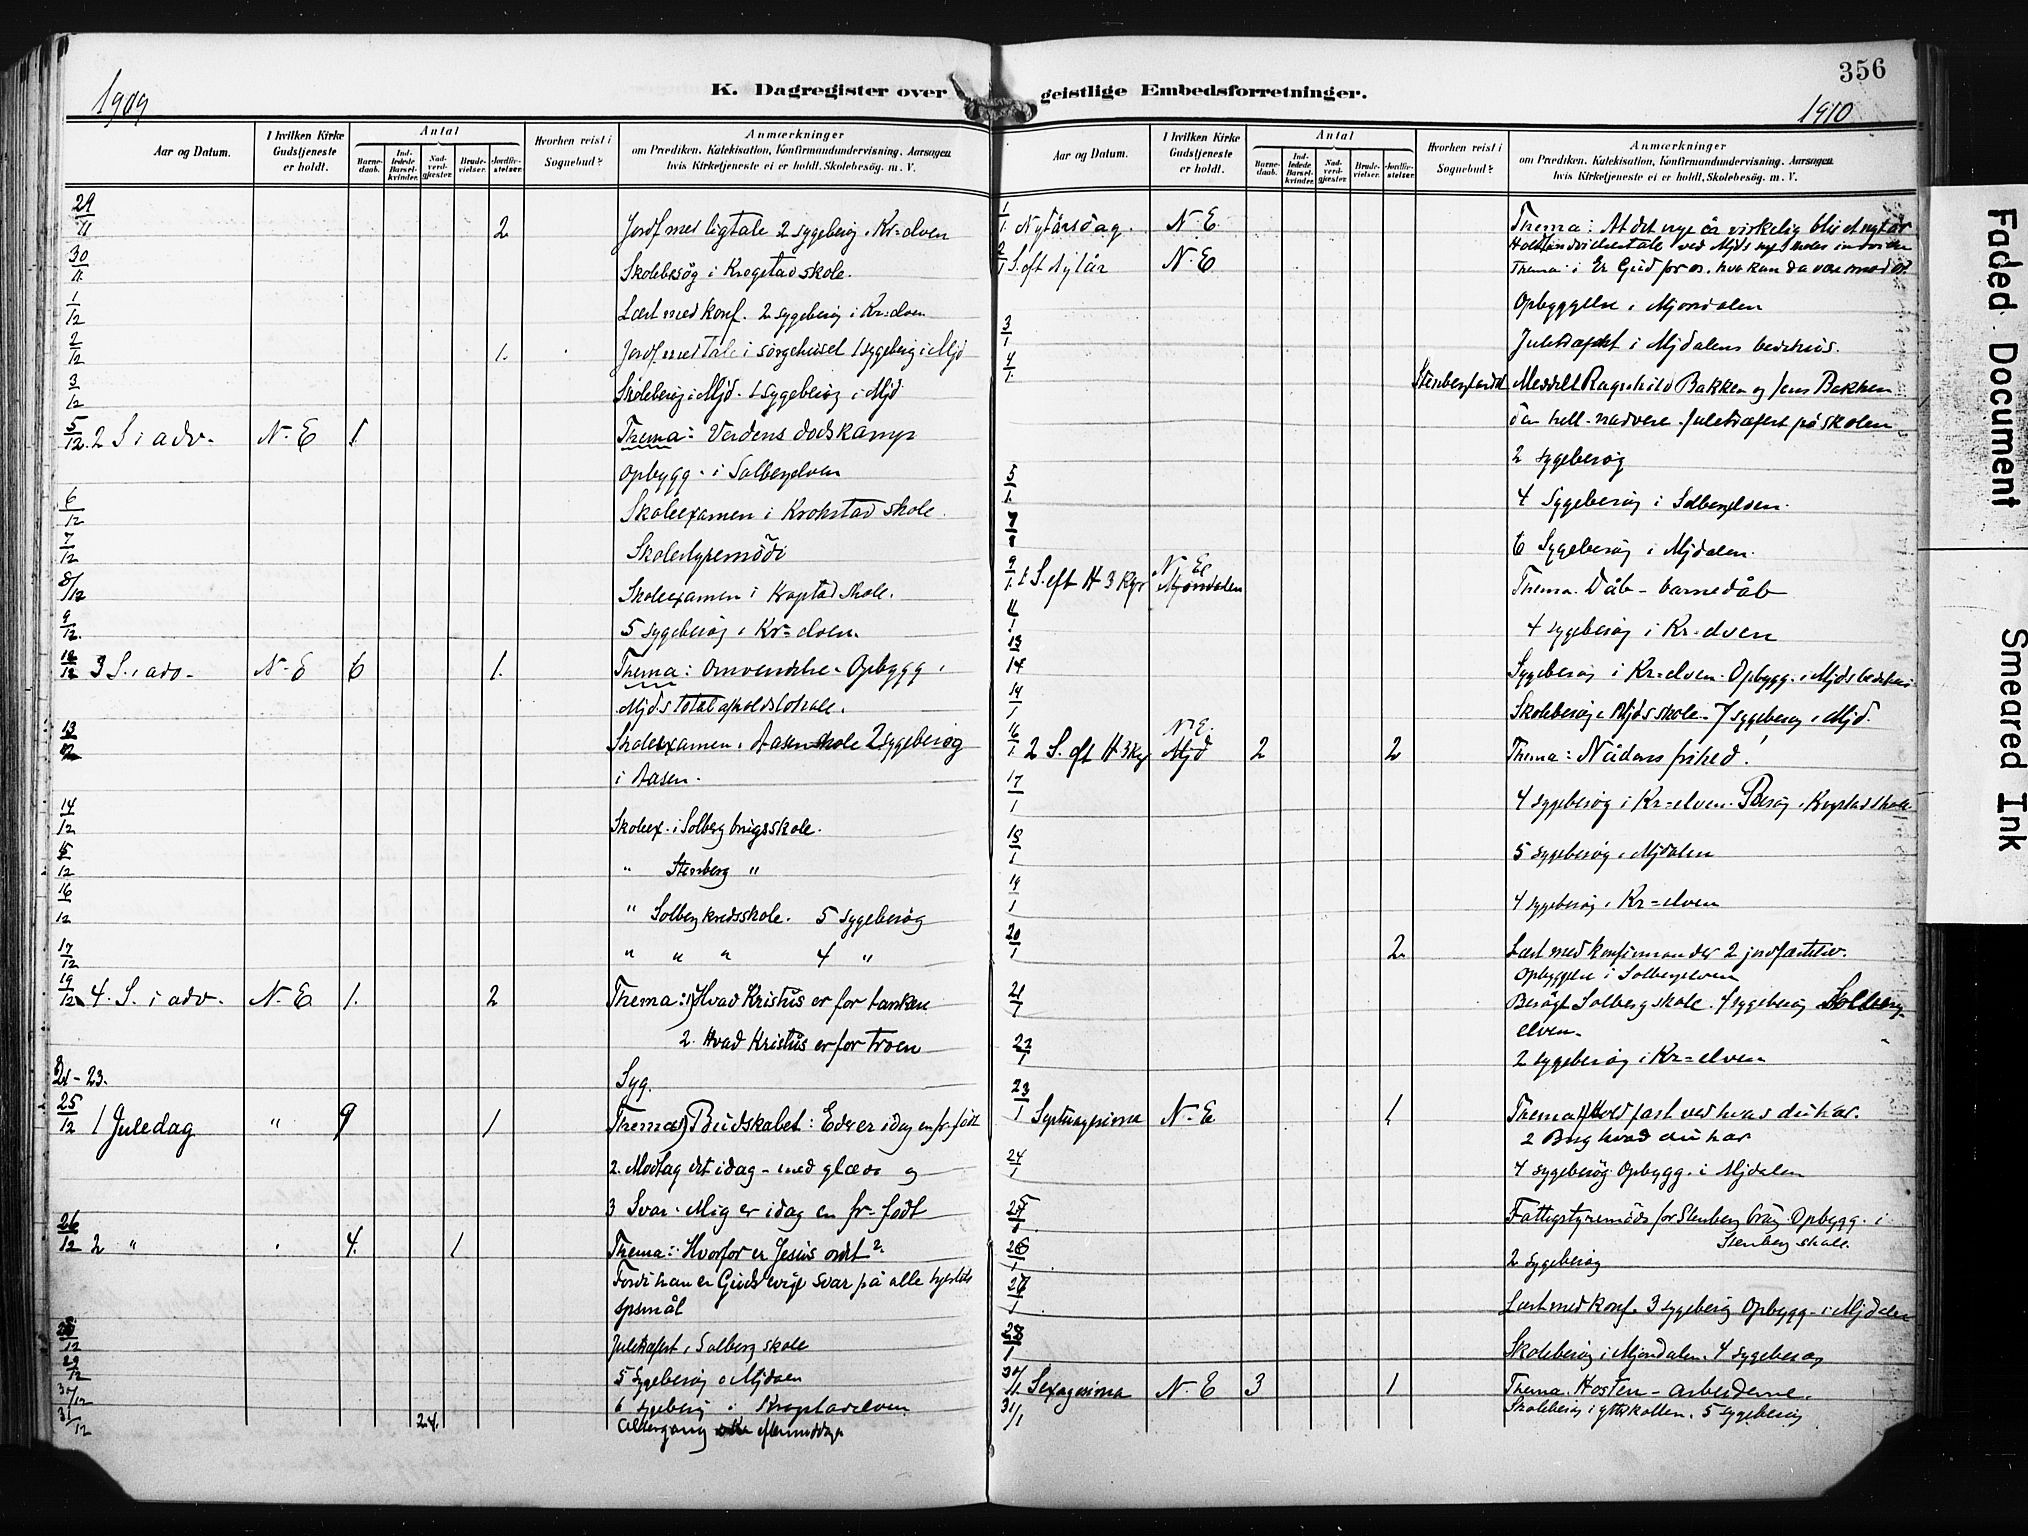 356
1909
K. Dagregister over geistlige Embedsforretninger.
1910
Aar og Datum.
I hvilken Kirke Gudstjeneste er holdt.
Antal
Barnedaab.
Indledede Barselkvinder.
Nadverdgjæster.
Brudevielser.
Jordfæstelser.
Hvorhen reist i Sognebud?
Anmærkninger
om Prædiken, Katekisation, Konfirmandundervisning, Aarsagen
hvis Kirketjeneste ei er holdt, Skolebesøg. m. V.
29/11 2 Jordf med ligtale 2 sygebesøg i Kr=elven
30/11 Skolebesøg i Krogstad skole.
1/12 Læst med konf. 2 sygebesøg i Kr=elven
2/12 1. Jordf med Tale i sørgehuset 1 sygebesøg i Mjd
3/12 Skolebesøg i Mjd. 1 sygebesøg i Mjd
5/12. 2 S i adv. N. E 1 Thema: Verdens dødskamp
Opbygg. i Solbergelven
6/12 Skoleexamen i Krokstad skole.
7/12 Skolestyremöde
8/12 Skoleexamen i Krogstad skole.
9/12. 5 sygebesøg i Kr=elven.
12/12 3 S. i adv. N. E 6 1. Thema: Omvendelse. Opbygg i
Mjds Totalafholdslokale.
13/12 Skoleexamen i Aasen skole 2 sygebesøg
i Aasen.
14/12 Skoleex. i Solberg brugsskole.
15/12 " Stenberg "
16/12 " Solberg kredsskole. 5 sygebesøg
17/12 " " " 4 "
19/12 4. S. i adv. N. E 1. 2 Thema: 1) Hvad Kristus er for tanken
2. Hvad Kristus er for troen
21-23. Syg.
25/12 1 Juledag " 9 1 Thema 1) Budskabet: Eder er idag en fr. født
2. Modtag det idag - med glæde og
3 Svar. Mig er idag en fr=født
26/12 2 " 4. 1 Thema: Hvorfor er Jesus ordet?
Fordi han er Guds evige svar på alle
spsmål
28/12 Juletræfest i Solberg skole
29/12 5 Sygebesøg i Mjdalen
30/12 6 sygebesøg i Krogstadelven
31/12 24. Altergang eftermiddag
Aar og Datum.
I hvilken Kirke Gudstjeneste er holdt.
Antal
Barnedaab.
Indledede Barselkvinder.
Nadverdgjæster.
Brudevielser.
Jordfæstelser.
Hvorhen reist i Sognebud?
Anmærkninger
om Prædiken, Katekisation, Konfirmandundervisning, Aarsagen
hvis Kirketjeneste ei er holdt, Skolebesøg. m. V.
1/1. Nytårsdag. N. E. Thema: At det nye år virkelig blir et nyt år
Holdt indvielsestale ved Mjds nye
2/1 S. eft Nytår N. E Thema: Er Gud for os, hvo kan da være mod os.
Opbyggelse i Mjøndalen
3/1 Juletræfest i Mjdalens bedehus.
4/1. Meddelt Ragnhild Bakken og Jens Bakken
den hell. nadvere. Juletræfest på skolen
2 sygebesøg
5/1. 4 Sygebesøg i Solbergelven.
7/8 6 Sygebesøg i Mjdalen.
9/1. 1 S. eft H 3 Kgr N. E. Mjøndalen Thema. Dåb - barnedåb
11/1 4 sygebesøg i Kr=elven
13
14 Sygebesøg i Kr=elven. Opbygg. i Mjds bedehus
14/1 Skolebesøg i Mjds skole. 7 sygebesøg i Mjd.
16/1. 2 S. eft H 3 kg N. E. Mjd 2 2 Thema: Nådens frihed!
17/1 4 sygebesøg i Kr=elven. Besøg i Krogstad skole.
18/1 5 sygebesøg i Mjdalen
19/1 4 sygebesøg i Kr=elven
20/1 2. Læst med konfirmander 2 jordfæstelser.
Opbyggelse i Solbergelven
21/1 Besøgt Solberg skole. 4 sygebesøg Solberg-
elven.
22/1 2 sygebesøg i Kr=elven
23/1 Septuagesima N. E 1 Thema 1) Hold fast ved hvad du har.
2 Brug hvad du har
24/1 4 sygebesøg. Opbygg. i Mjdalen
25/1 Fattigstyremöde for Stenberg Opbygg. i
Stenberg skole.
26/1 2 sygebesøg
27/1 Læst med konf. 3 sygebesøg Opbygg. i Mjdalen
28/1 Skolebesøg i Mjøndalen. 4 sygebesøg
30/1. Sexagesima N. E 3 1 Thema. Høsten - arbeiderne.
31/1 Skolebesøg i ytterkollen. 5 sygebesøg
Faded Document
Smeared Ink